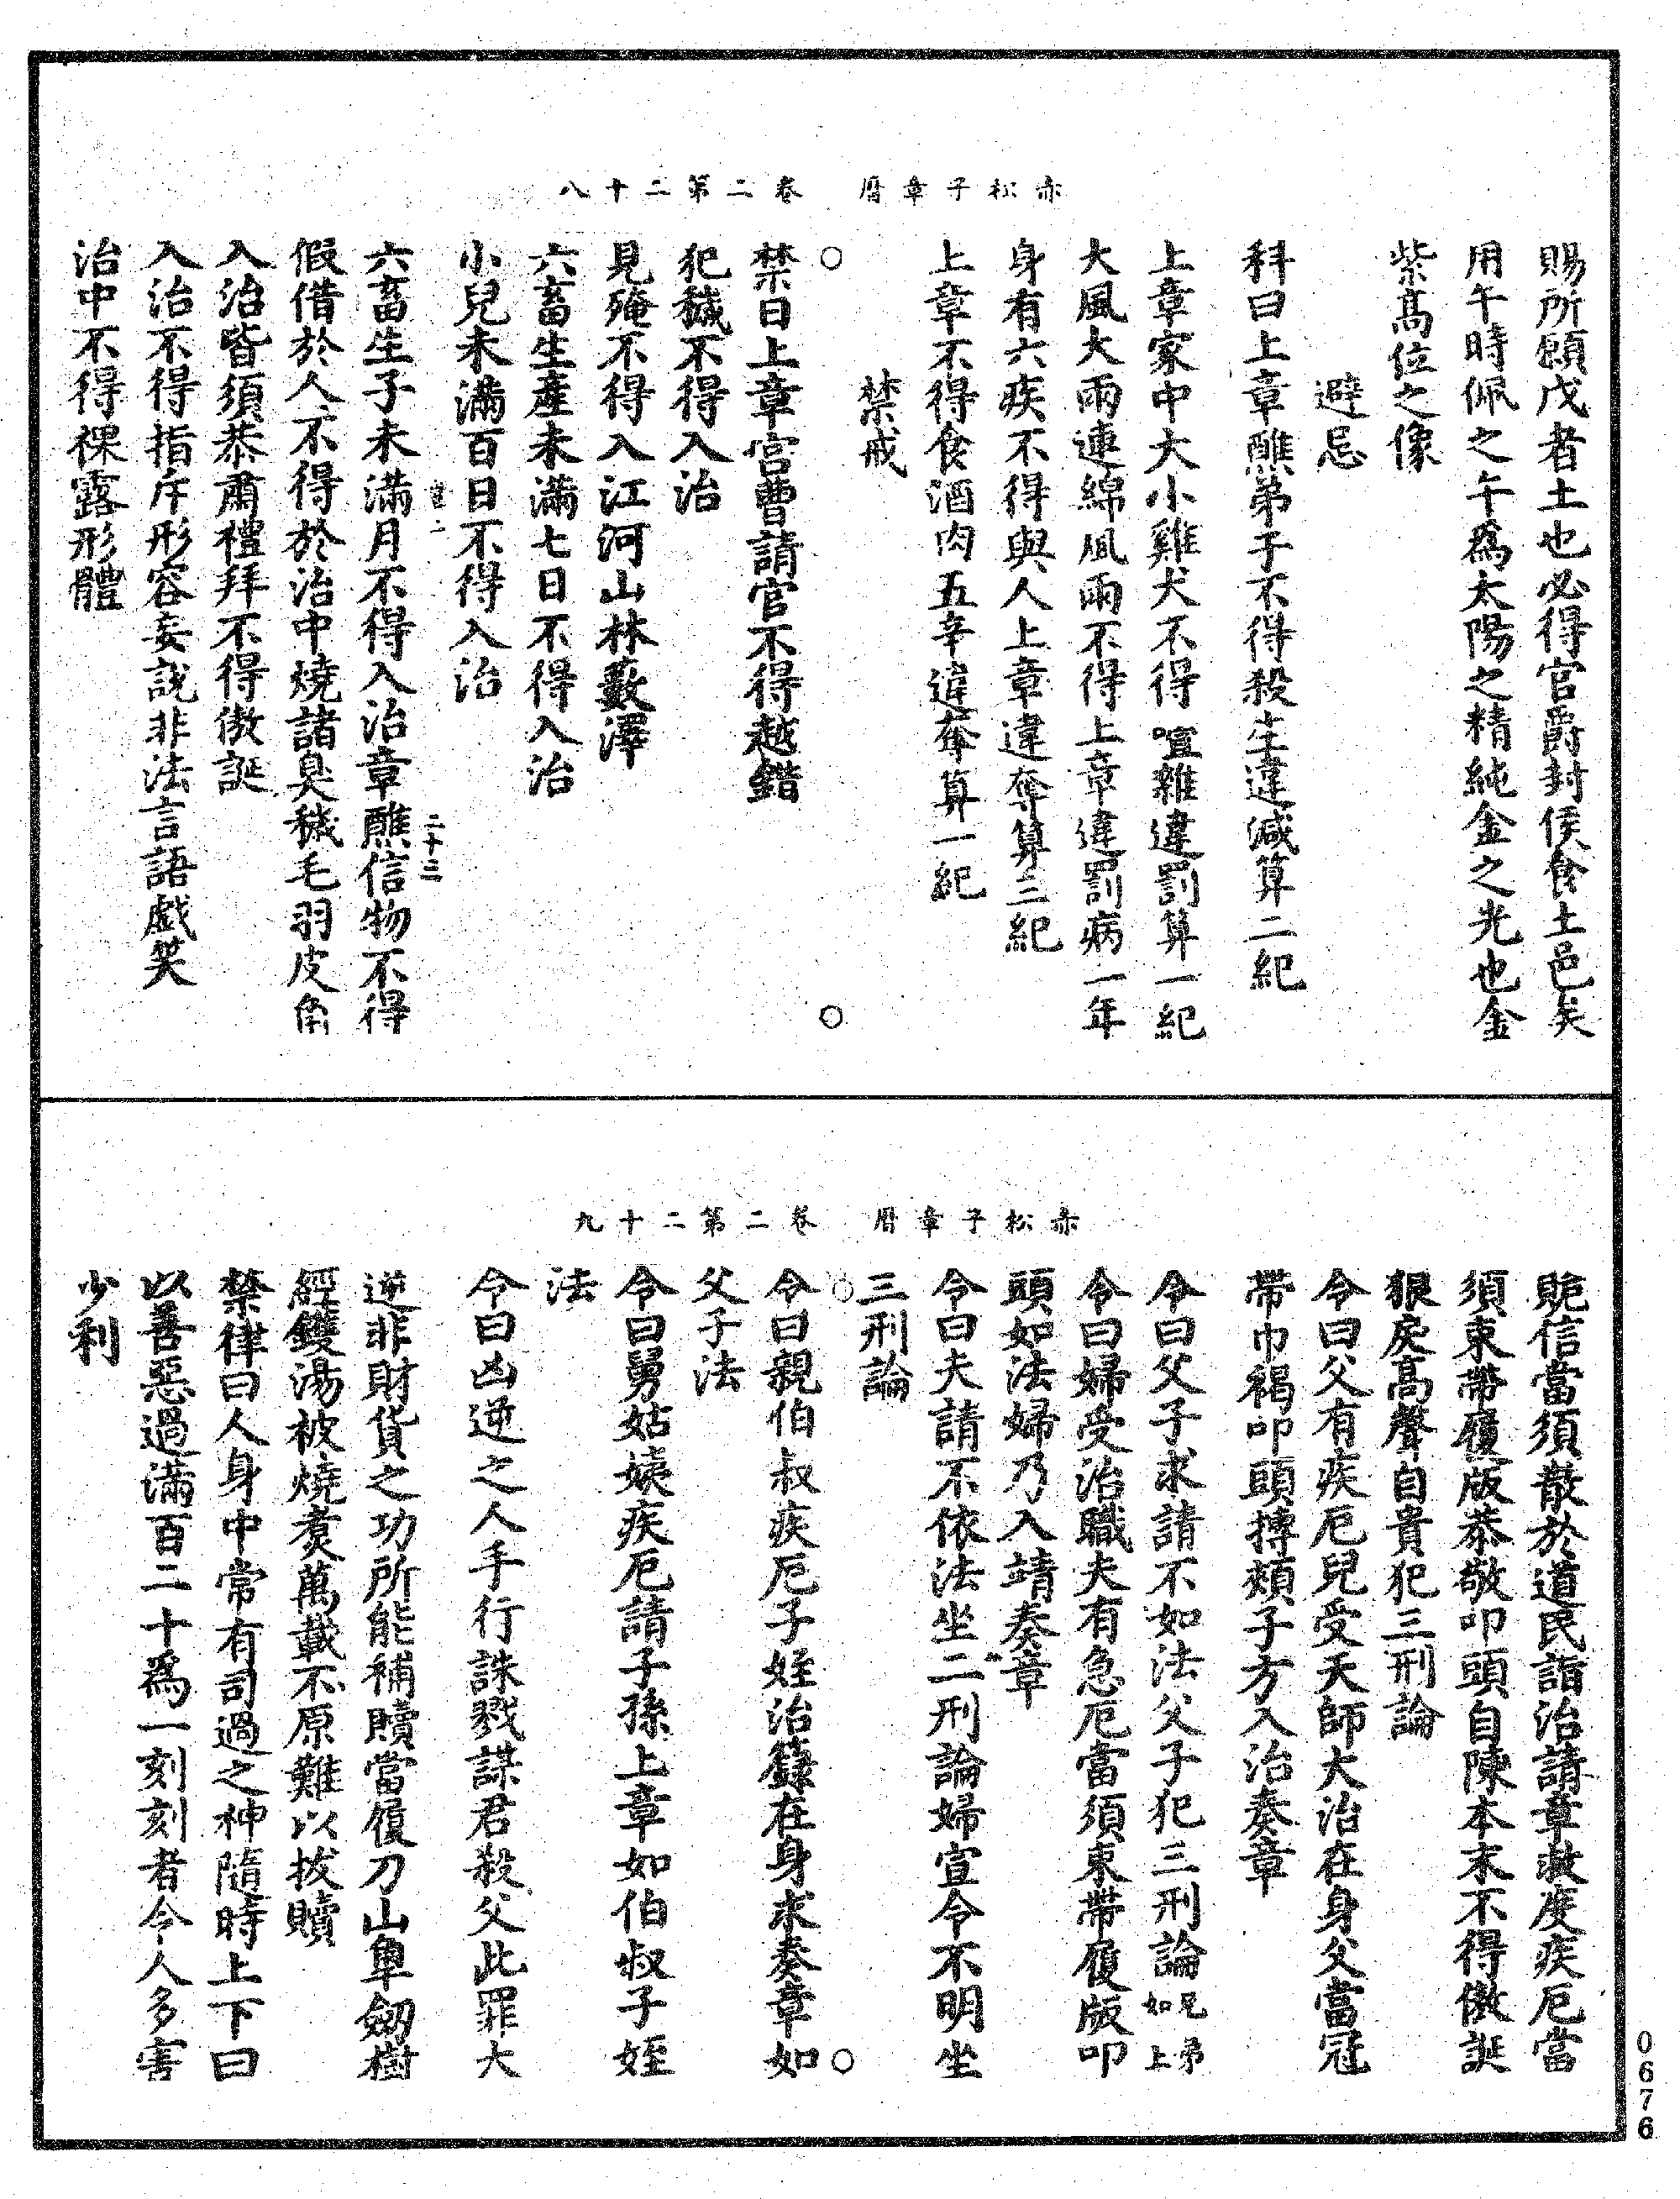 赤松子章曆　卷二第二十八
賜所願戊者土也必得官爵封侯食土邑矣
用午時佩之午爲太陽之精純金之光也金
紫高位之像
避忌
科曰上章醮弟子不得殺生違減算二紀
上章家中大小雞犬不得喧雜違罰算一紀
大風大雨連綿風雨不得上章違罰病一年
身有六疾不得與人上章違奪算三紀
上章不得食酒肉五辛違奪算一紀
禁戒
禁曰上章宮曹請官不得越錯
犯穢不得入治
見殗不得入江河山林藪澤
六畜生產未滿七日不得入治
小兒未滿百日不得入治
二十三
六畜生子未滿月不得入治章醮信物不得
假借於人不得於治中燒諸臭穢毛羽皮角
入治皆須恭肅禮拜不得傲誕
入治不得指斥形容妄說非法言語戲笑
治中不得裸露形體
赤松子章曆　卷二第二十九
賝信當須散於道民詣治請章救度疾厄當
須束帶履版恭敬叩頭自陳本末不得傲誕
狠戾高聲自貴犯三刑論
令曰父有疾厄兒受天師大治在身父當冠
帶巾褐叩頭摶頰子方入治奏章
令曰父子求請不如法父子犯三刑論兄弟如上
令曰婦受治職夫有急厄當須束帶履版叩
頭如法婦乃入靖奏章
令曰夫請不依法坐二刑論婦宣令不明坐
三刑論
令曰親伯叔疾厄子姪治籙在身求奏章如
父子法
令曰舅姑姨疾厄請子孫上章如伯叔子姪
法
令曰凶逆之人手行誅戮謀君殺父此罪大
逆非財貨之功所能補贖當履刀山卑劒樹
經鑊湯被燒煑萬載不原難以拔贖
禁律曰人身中常有司過之神隨時上下曰
以善惡過滿百二十爲一刻刻者令人多害
少利
0676